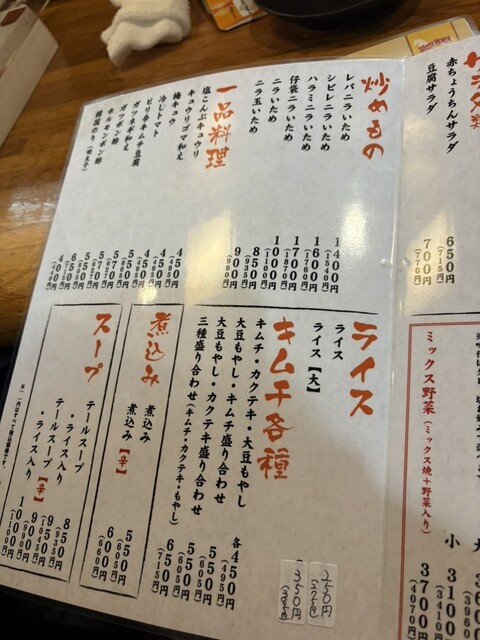 サラダ類
赤ちょうちんサラダ
650円
(715円)
豆腐サラダ
700円
(770円)
炒めもの
レバニラいため
1400円
(1540円)
シビレニラいため
1600円
(1760円)
ハラミニラいため
1700円
(1870円)
仔袋ニラいため
1000円
(1100円)
ニラいため
850円
(935円)
ニラ玉いため
900円
(990円)
一品料理
塩こんぶキュウリ
450円
(495円)
キュウリゴマ和え
450円
(495円)
梅キュウ
450円
(495円)
冷しトマト
450円
(495円)
ピリ辛キムチ豆腐
550円
(605円)
ガツネギ和え
570円
(627円)
ガツポン酢
570円
(627円)
ホルモンポン酢
韓国のり
400円
(440円)
ミックス野菜(ミックス焼+野菜入り)
小
3100円
(3410円)
3700円
(4070円)
ライス
ライス
250円
ライス【大】
350円
キムチ各種
キムチ・カクテキ・大豆もやし
各450円
(495円)
大豆もやし・キムチ盛り合わせ
550円
(605円)
大豆もやし・カクテキ盛り合わせ
550円
(605円)
三種盛り合わせ(キムチ・カクテキ・もやし)
650円
(715円)
煮込み
煮込み
550円
(605円)
煮込み【辛】
600円
(660円)
スープ
テールスープ
850円
(935円)
・ライス入り
950円
テールスープ【辛】
900円
(990円)
・ライス入り
1000円
(1100円)